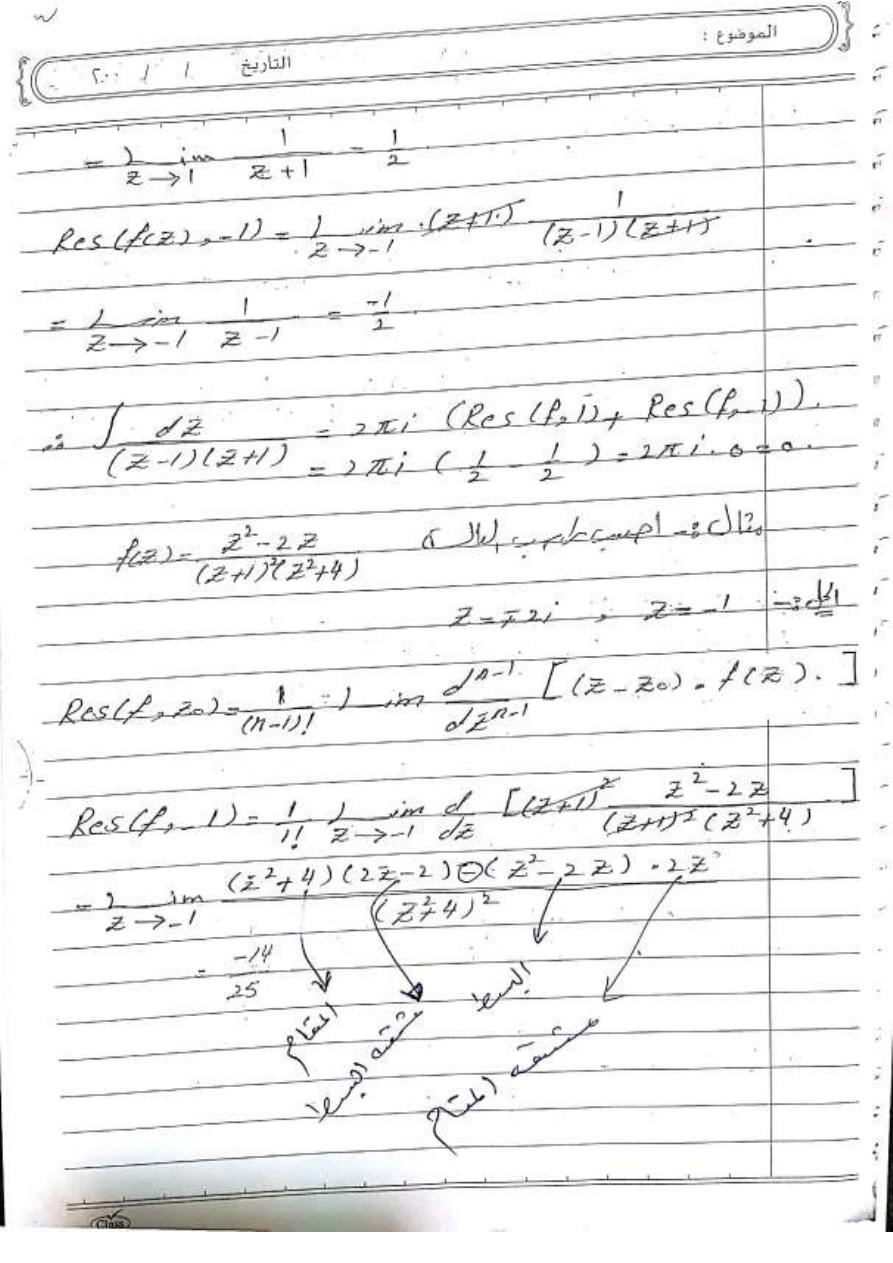 الموضوع :
التاريخ / / ٢٠٠
= lim_{z→1} 1/(z+1) = 1/2
Res(f(z), -1) = lim_{z→-1} (z+1) 1/((z-1)(z+1))
= lim_{z→-1} 1/(z-1) = -1/2
∴ ∫ dz/((z-1)(z+1)) = 2πi (Res(f,1) + Res(f,-1)).
= 2πi (1/2 - 1/2) = 2πi . 0 = 0.
مثال :- احسب f(z) = (z²-2z)/((z+1)²(z²+4))
الحل :- z = -1 , z = ∓2i
Res(f, z0) = 1/(n-1)! lim d^{n-1}/dz^{n-1} [(z-z0) . f(z).]
Res(f, -1) = 1/1! lim_{z→-1} d/dz [(z+1)² (z²-2z)/((z+1)²(z²+4))]
= lim_{z→-1} ((z²+4)(2z-2) - (z²-2z) . 2z)/(z²+4)²
= -14/25
المقام
مشتقة البسط
البسط
مشتقة المقام
Class